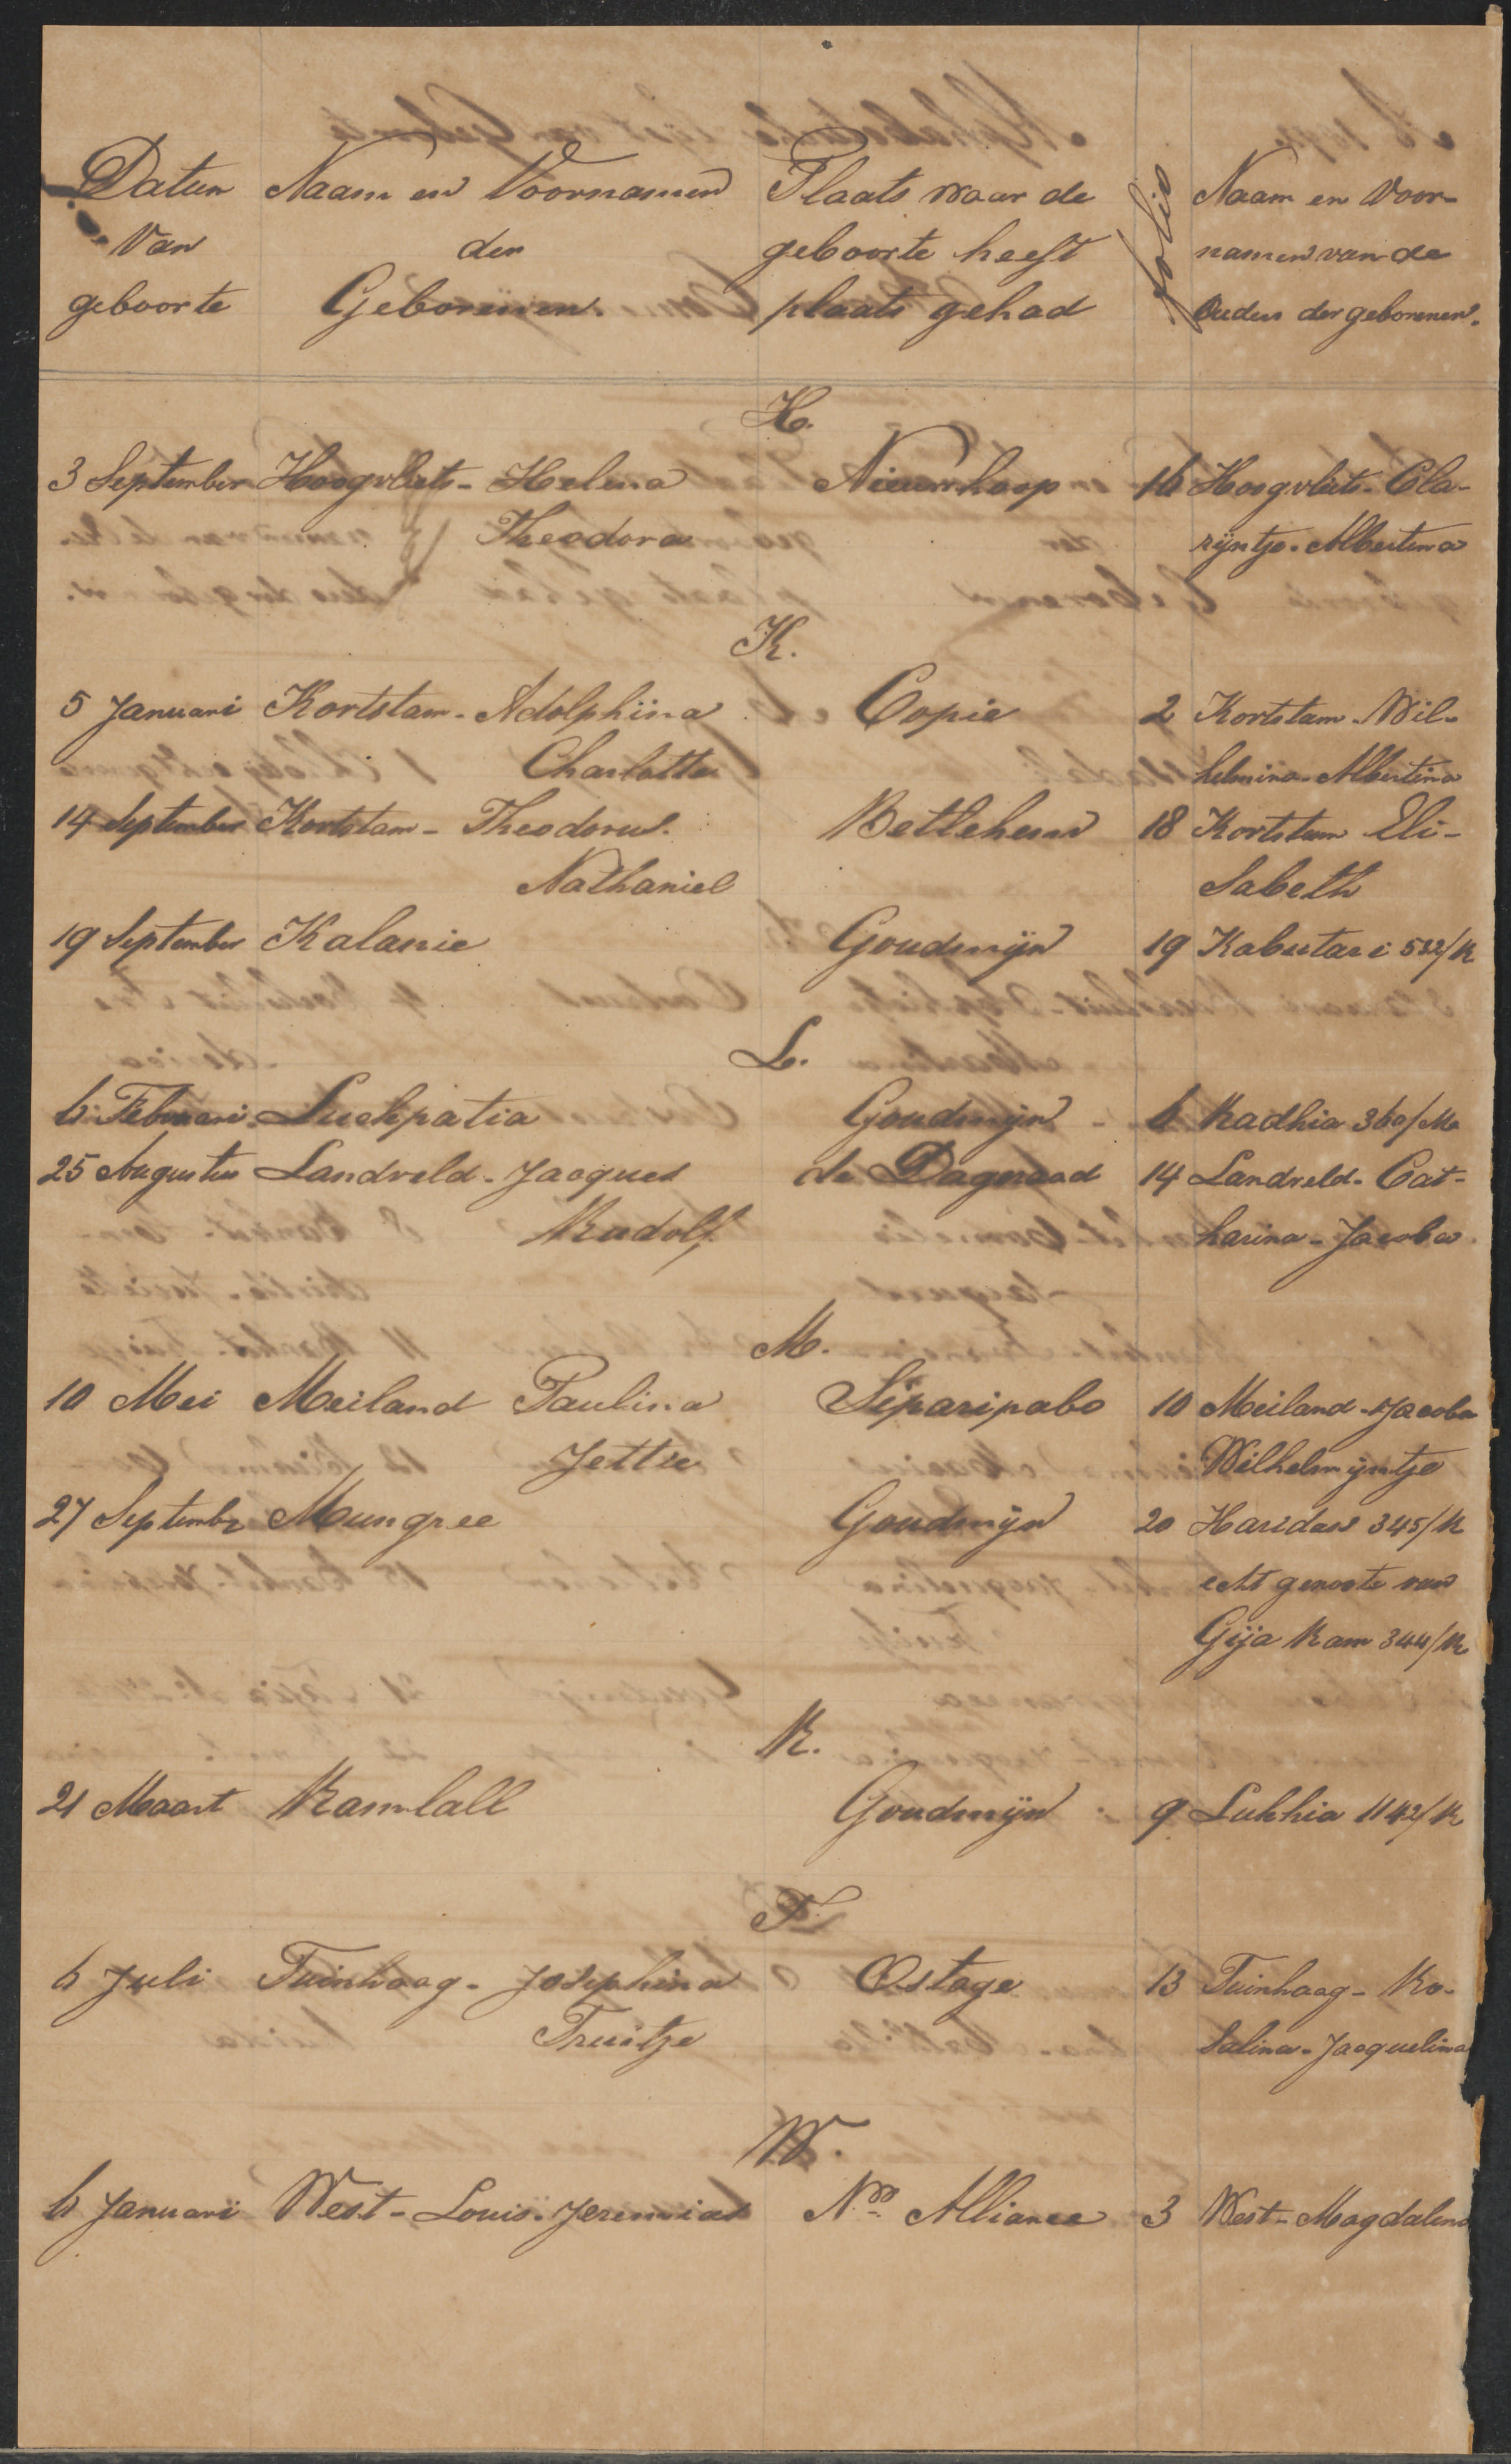 Datum Naam en Voornamen Plaats waar de folio Naam en Voor-
Van der geboorte heeft namen van de
geboorte Geborenen. plaats gehad Ouders der geborenen.
H.
3 September Hoogvliets - Helena Nieuwhoop 16 Hoogvliets - Cla-
Theodora rijntje - Albertina
K.
5 Januari Kortstam - Adolphina Copie 2 Kortstam - Wil-
Charlotte helmina - Albertina
14 September Kortstam - Theodorus. Betlehem 18 Kortstam Eli-
Nathaniel Sabeth
19 September Kalanie Goudmijn 19 Kabutari 532/K
L.
6 Februari Luckpatia Goudmijn 6 Radhia 360/Ma
25 Augustus Landveld - Jacques de Dageraad 14 Landveld - Cat-
Rudolf harina - Jacoba
M.
10 Mei Meiland Paulina Siparipabo 10 Meiland - Jacoba
Jettie Wilhelmijntje
27 Septembr Mungree Goudmijn 20 Haridas 345/K
echt genoote van
Gija Ram 344/K
R.
21 Maart Ramlall Goudmijn 9 Lukhia 1142/K
T.
6 Juli Tuinhaag - Josephina Ostage 13 Tuinhaag - Ro-
Truitje Salina - Jacquelina
W.
6 Januari West - Louis. Jeremias Alliance 3 West - Magdalena